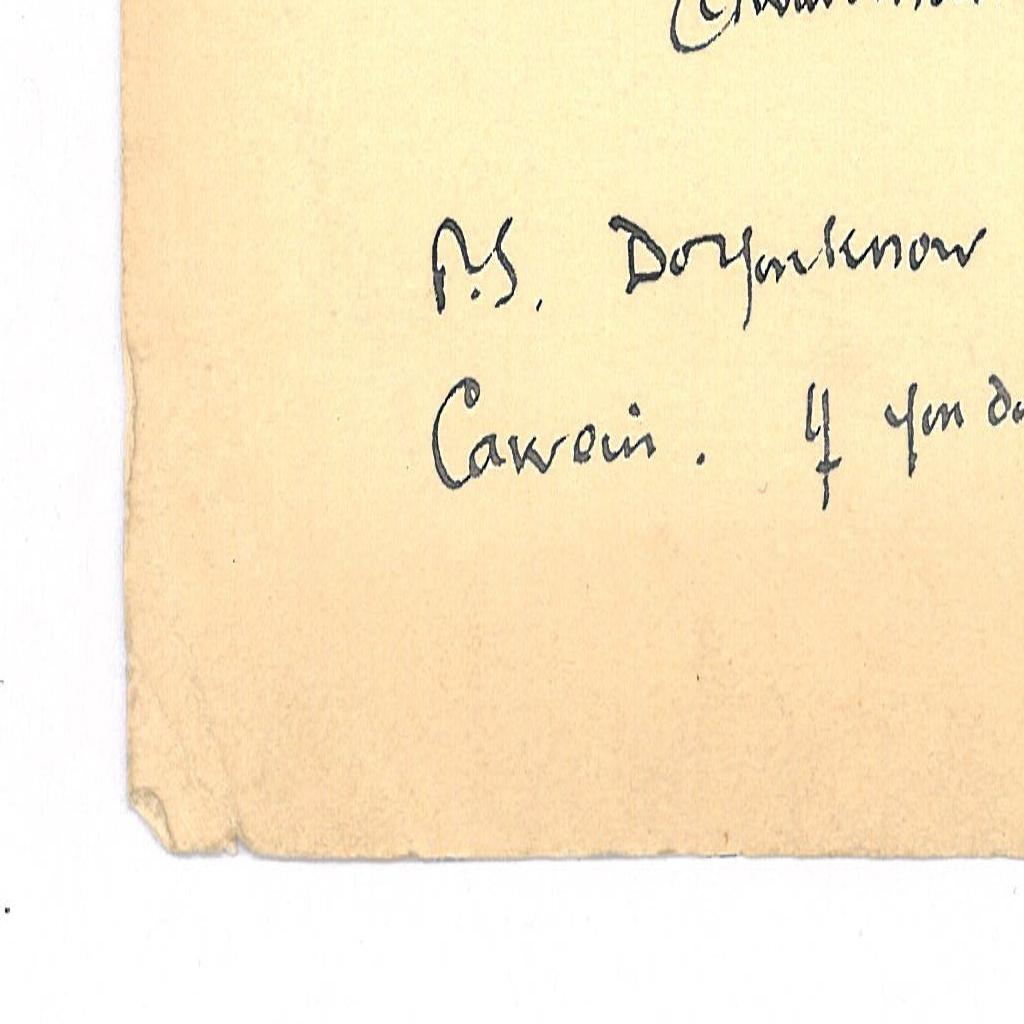 P.S. Do you know
Cawein. If you do